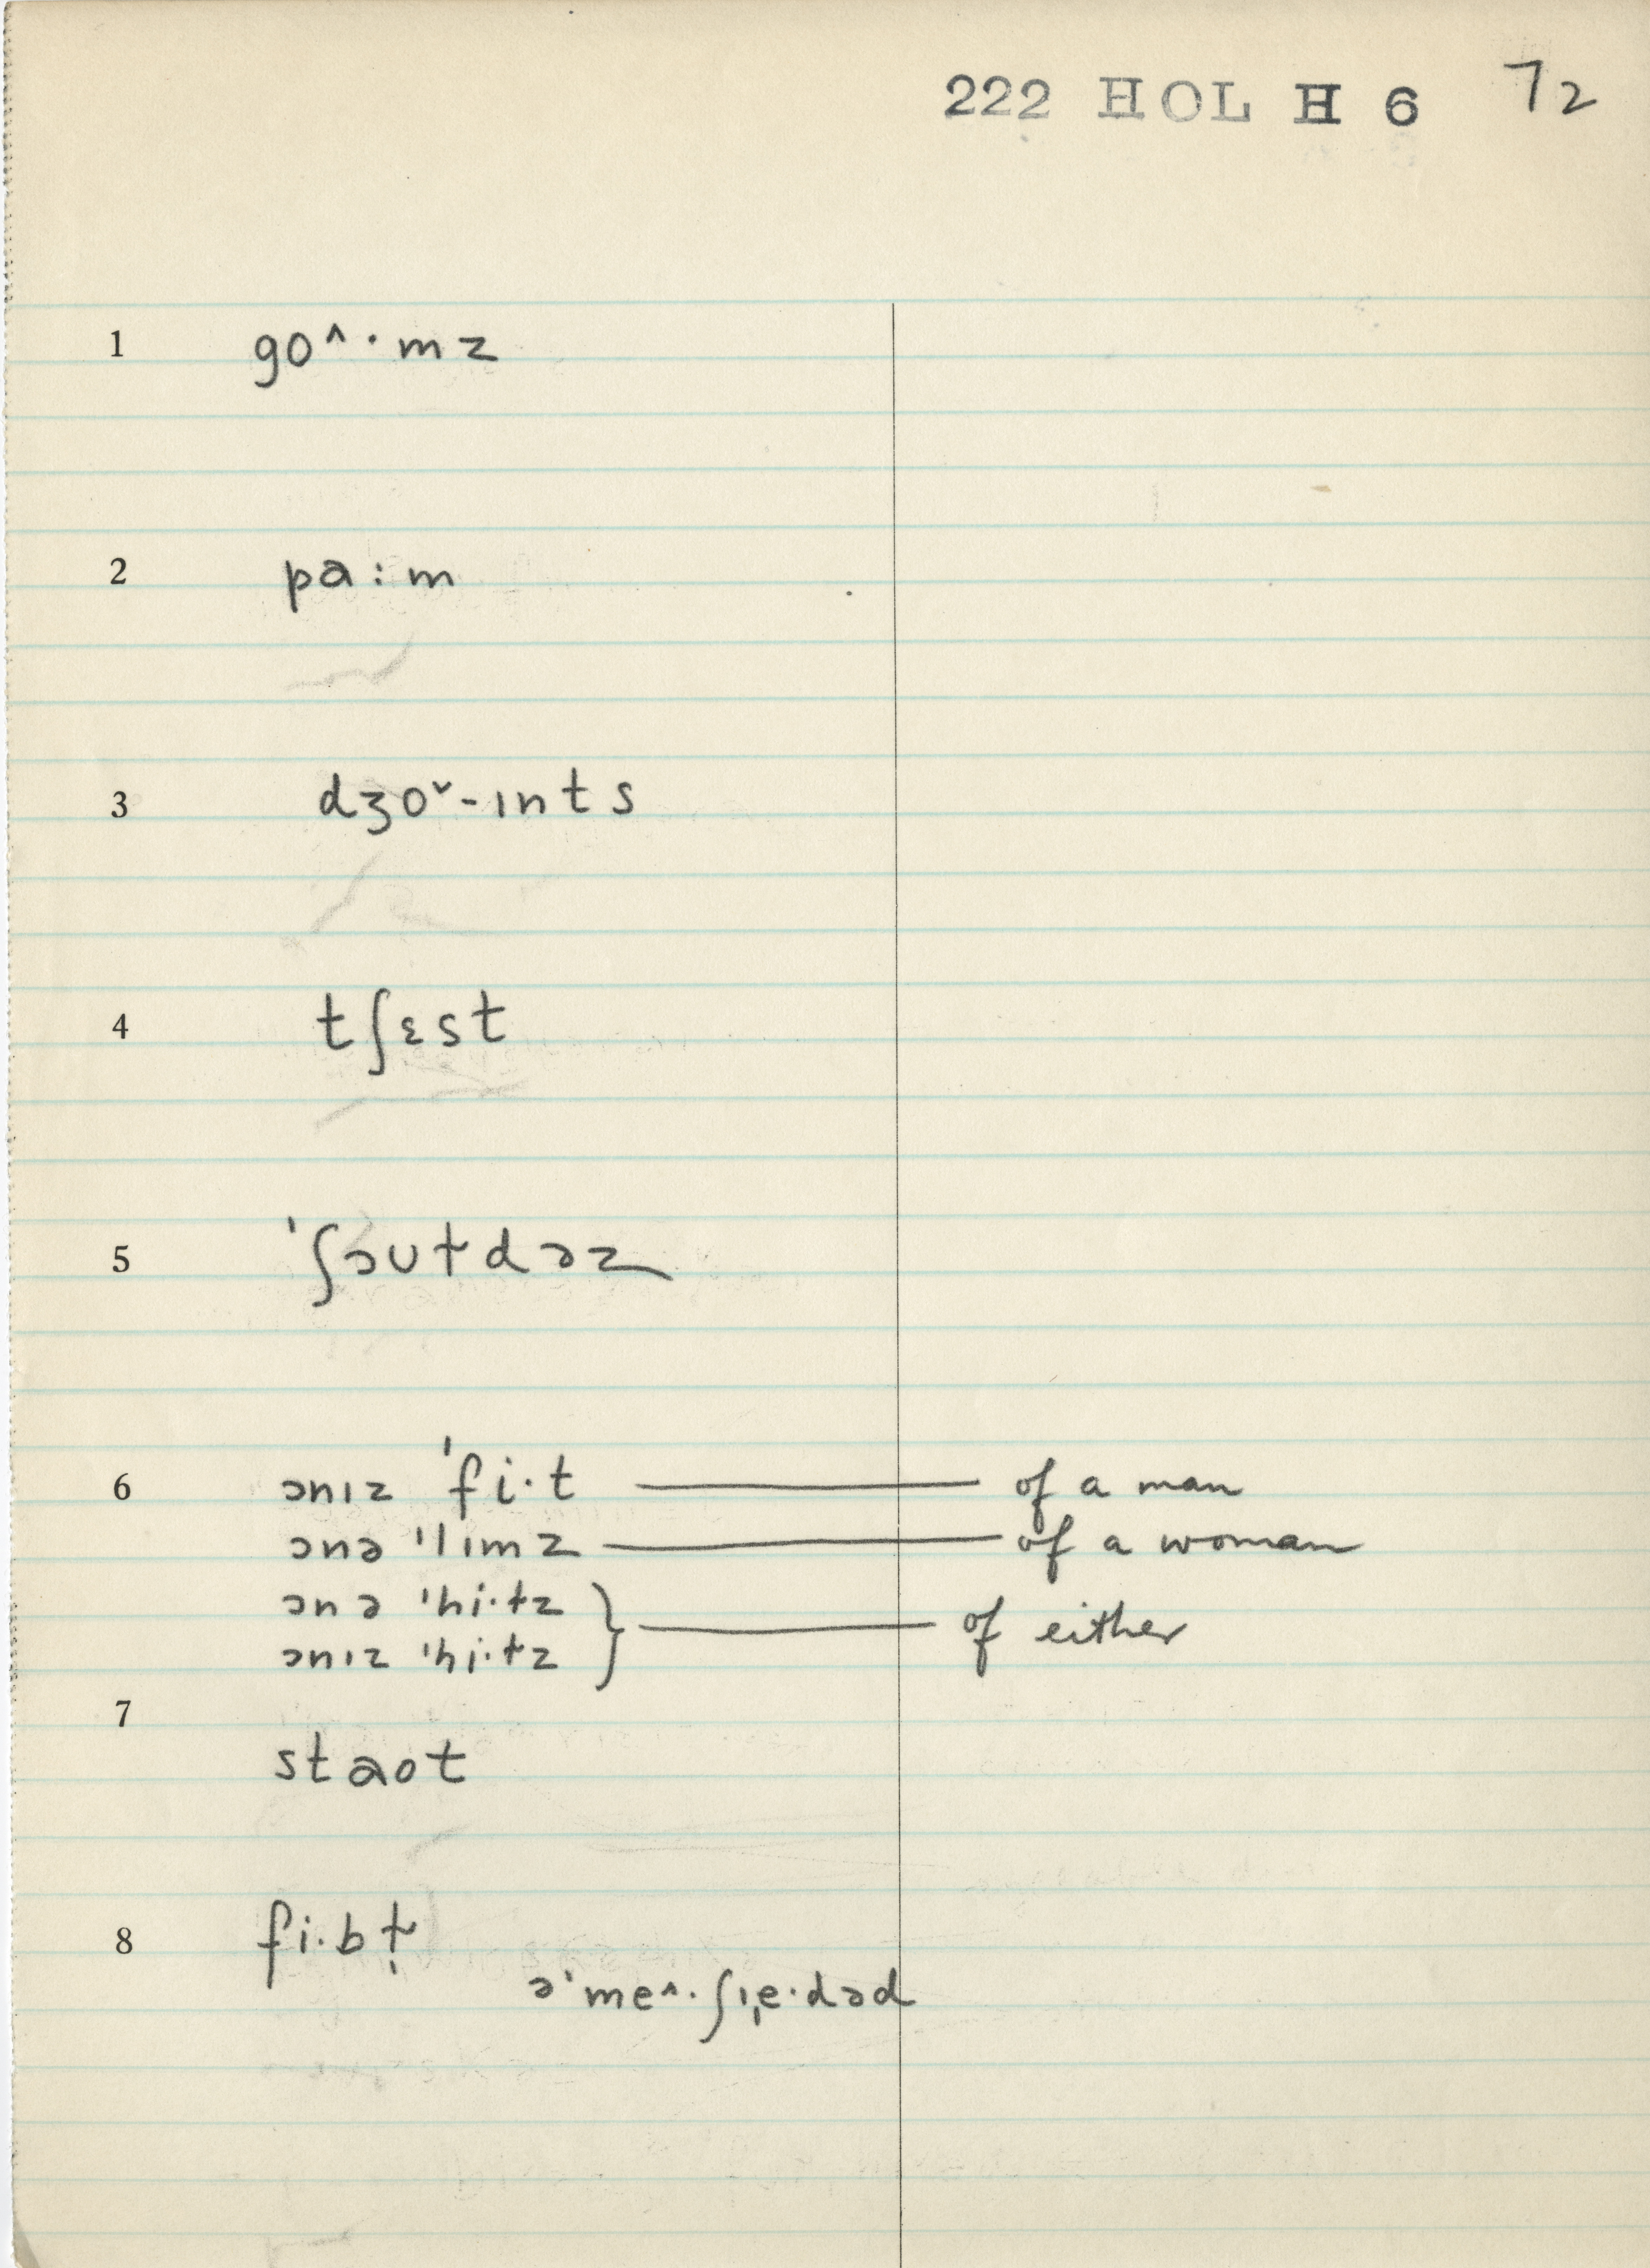 222 HOL H 6 72
1 go^·mz
2 pa:m
3 dʒo˅-ɪnts
4 tʃɛst
5 ˈʃəʊɫdəz
6 ɔnɪz ˈfi·t — of a man
ɔnə ˈlɪmz — of a woman
ɔnə ˈhi·ɫz
ɔnɪz ˈhi·ɫz } — of either
7 staot
8 fi·bɫ̩
əˈme^·ʃɪˌe·dəd